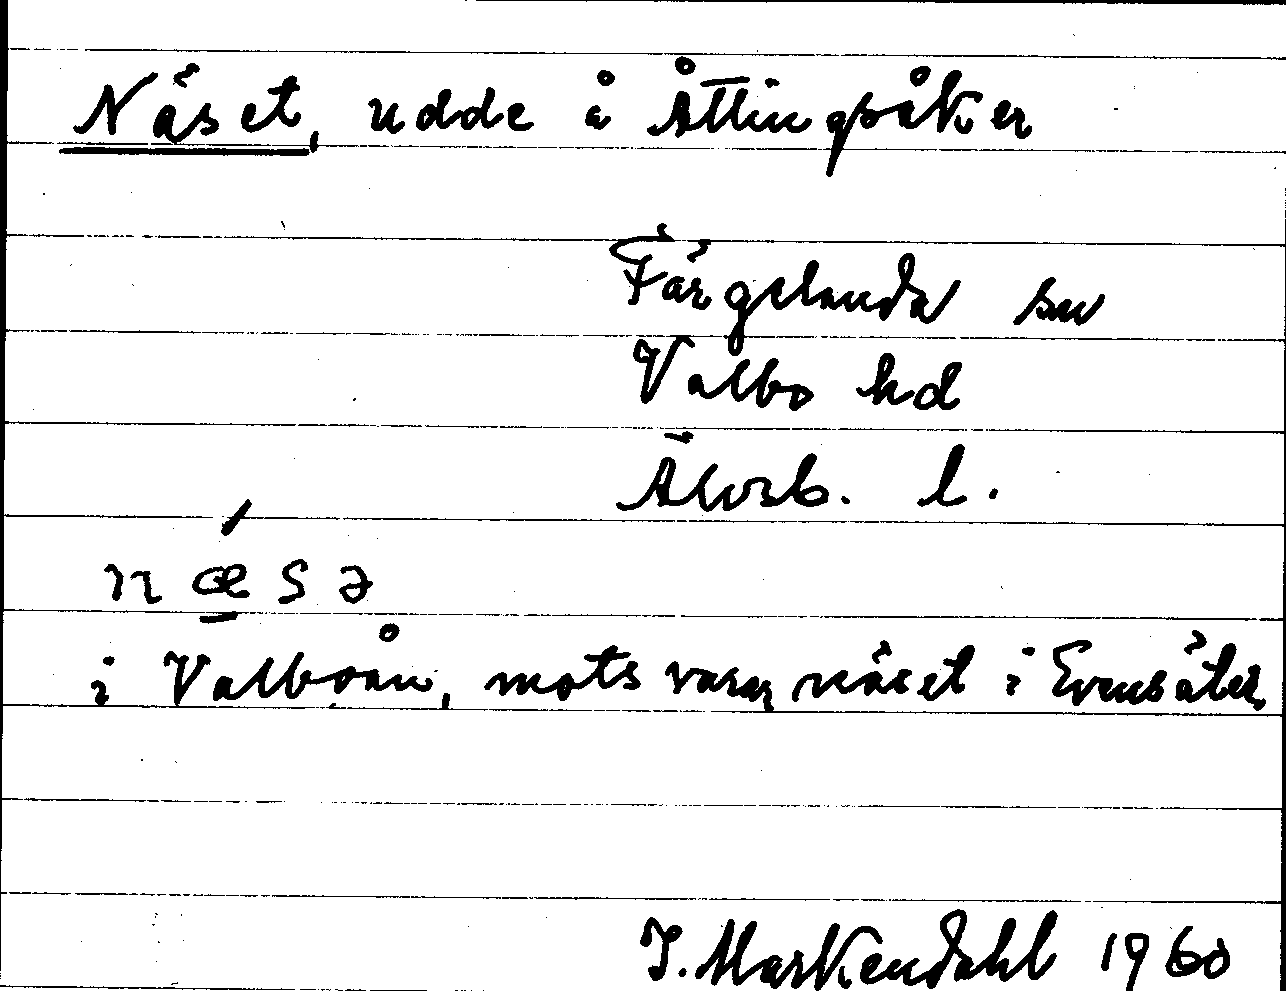 Näset, udde å Åttingsåker
Färgelanda sn
Valbo hd
Älvsb. l.
nǽ̱sə
i Valboån, motsvarar näset i Evensäter
J. Markendahl 1960